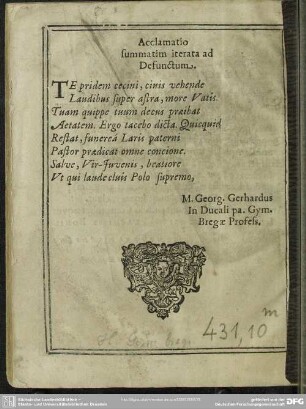 Acclamatio
summatim iterata ad
Defunctum.
TE pridem cecini, civis vehende
Laudibus super astra, more Vatis.
Tuam quippe tuum decus præibat
Aetatem. Ergo tacebo dicta. Quicquid
Restat, funereâ Laris paterni
Pastor prædicat omne concione.
Salve, Vir-Juvenis, beatiore
Vt qui laude cluis Polo supremo,
M. Georg. Gerhardus
In Ducali pa. Gym.
Bregæ Profess.
m
431,10